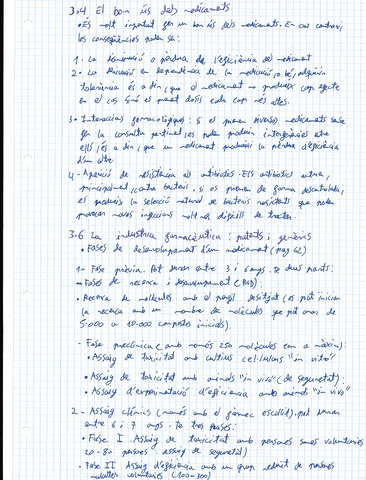 3.4 El bon ús dels medicaments
• És molt important fer un bon ús dels medicaments. En cas contrari,
les conseqüències poden ser:
1. La disminució o pèrdua de l'eficiència del medicament
2. La derivació en dependència de la medicació, o bé, adquirir
tolerància és a dir, que el medicament no produeixi cap efecte
en el cos sinó es pren dosis cada cop més altes.
3. Interaccions farmacològiques: si es prenen diversos medicaments sense
fer la consulta pertinent, es poden produir interferències entre
ells, és a dir, que un medicament produeixi la pèrdua d'eficiència
d'un altre.
4 - Aparició de resistència als antibiòtics. Els antibiòtics actuen,
principalment, contra bacteris, si es prenen de forma descontrolada,
es produeix la selecció natural de bacteris resistents que poden
provocar noves infeccions molt més difícils de tractar.
3.6 La indústria farmacèutica: patents i genèrics
• Fases de desenvolupament d'un medicament (pag 62)
1- Fase prèvia. Pot durar entre 3 i 6 anys. Te dues parts:
- Fases de recerca i desenvolupament (R+D):
• Recerca de molècules amb el perfil desitjat (es pot iniciar
la recerca amb un nombre de molècules que pot anar de
5.000 a 10.000 compostos inicials).
- Fase preclínica (amb només 250 molècules com a màxim):
• Assaig de toxicitat amb cultius cel·lulars "in vitro"
• Assaig de toxicitat amb animals "in vivo" (de seguretat).
• Assaig d'experimentació d'eficiència amb animals "in vivo"
2 - Assaig clínics (només amb el fàrmac escollit). pot durar
entre 6 i 7 anys. Te tres fases:
• Fase I. Assaig de toxicitat amb persones sanes voluntàries
20-80 persones. assaig de seguretat)
• Fase II Assaig d'eficiència amb un grup reduït de persones
malaltes voluntàries (100-300)